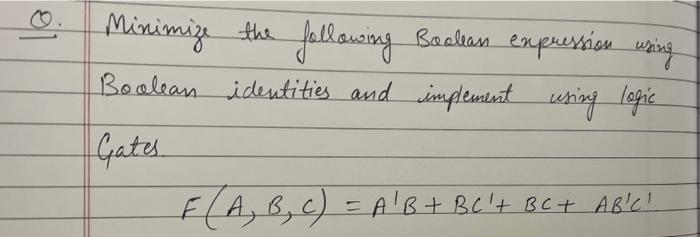 Q. Minimize the following Boolean expression using
Boolean identities and implement using logic
Gates.
F(A, B, C) = A'B + BC' + BC + AB'C'